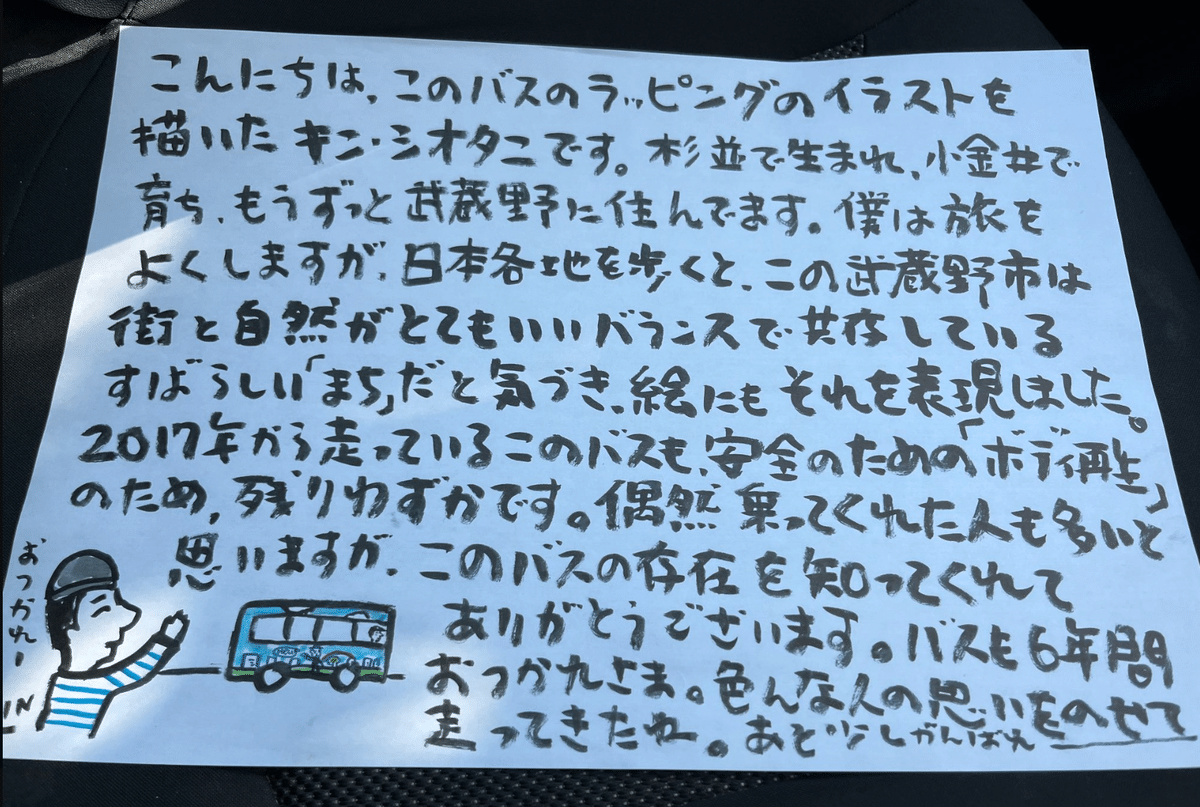 こんにちは，このバスのラッピングのイラストを
描いた キン・シオタニです。杉並で生まれ，小金井で
育ち、もうずっと武蔵野に住んでます。僕は旅を
よくしますが、日本各地を歩くと、この武蔵野市は
街と自然がとてもいいバランスで共存している
すばらしい「まち」だと気づき、絵にもそれを表現しました。
2017年から走っているこのバスも、安全のための「ボディ再生」
のため，残りわずかです。偶然乗ってくれた人も多いと
思いますが、このバスの存在を知ってくれて
ありがとうございます。バスも6年間
おつかれさま。色んな人の思いをのせて
走ってきたね。あと少しがんばれ
おつかれー
IN